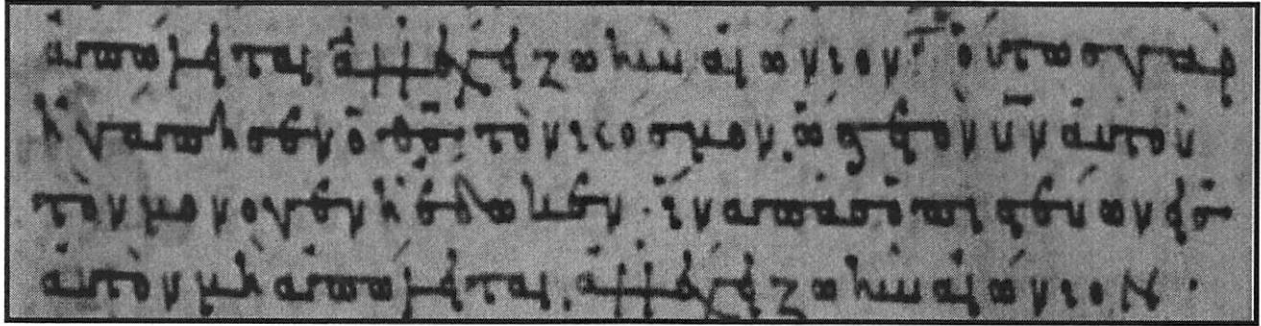 ἀπόληται ἀλλ' ἔχη ζωὴν αἰώνιον· οὕτως γὰρ
ἠγάπησεν ὁ θ̅ς̅ τὸν κόσμον, ὥστε τὸν υ̅ν̅ αὐτοῦ
τὸν μονογενῆ ἔδωκεν· ἵνα πᾶς ὁ πιστεύων εἰς
αὐτὸν μὴ ἀπόληται. ἀλλ' ἔχη ζωὴν αἰώνιον·